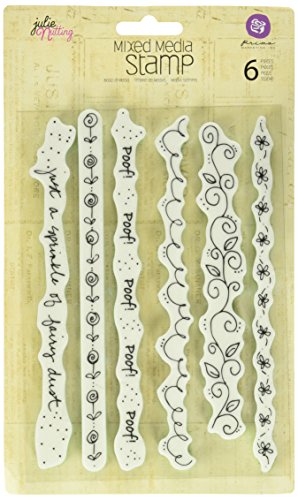 julie
Nutting
Mixed Media
Stamp
Prima
6
just a sprinkle of fairy dust
Poof!
Poof!
Poof!
Poof!
Poof!
Poof!